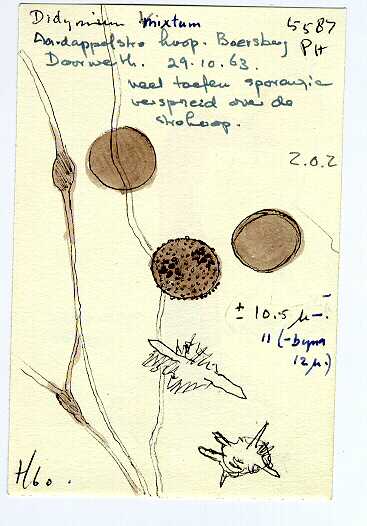 Didymium mixtum
5587
Aardappelstro hoop. Boersberg PH
Doorwerth. 29.10.63.
veel toefen sporangia
verspreid over de
strohoop.
2.0.2
± 10.5 µ–.
11 (–bijna
12 µ.)
H60.